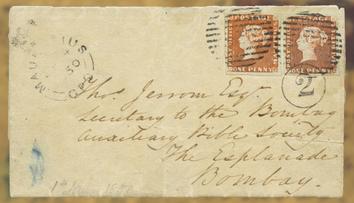 MAURITIUS
POSTAGE
ONE PENNY
POSTAGE
ONE PENNY
2
Thos. Jerrom Esqr.
Secretary to the Bombay
Auxiliary Bible Society
The Esplanade
Bombay.